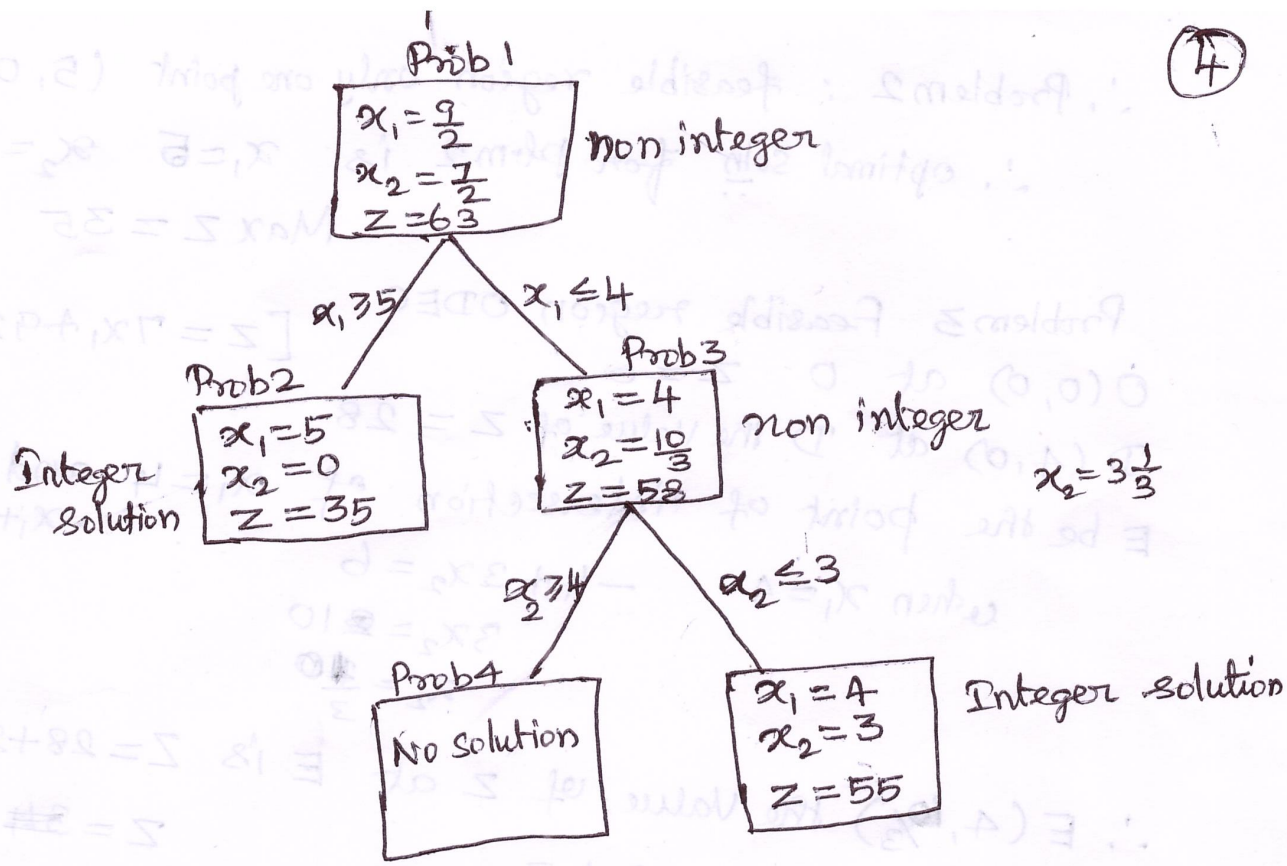 4
Prob 1
x₁ = 9/2
x₂ = 7/2
Z = 63
non integer
x₁ ≥ 5
x₁ ≤ 4
Prob2
x₁ = 5
x₂ = 0
Z = 35
Integer
solution
Prob3
x₁ = 4
x₂ = 10/3
Z = 58
non integer
x₂ = 3 1/3
x₂ ≥ 4
x₂ ≤ 3
Prob4
No solution
x₁ = 4
x₂ = 3
Z = 55
Integer solution